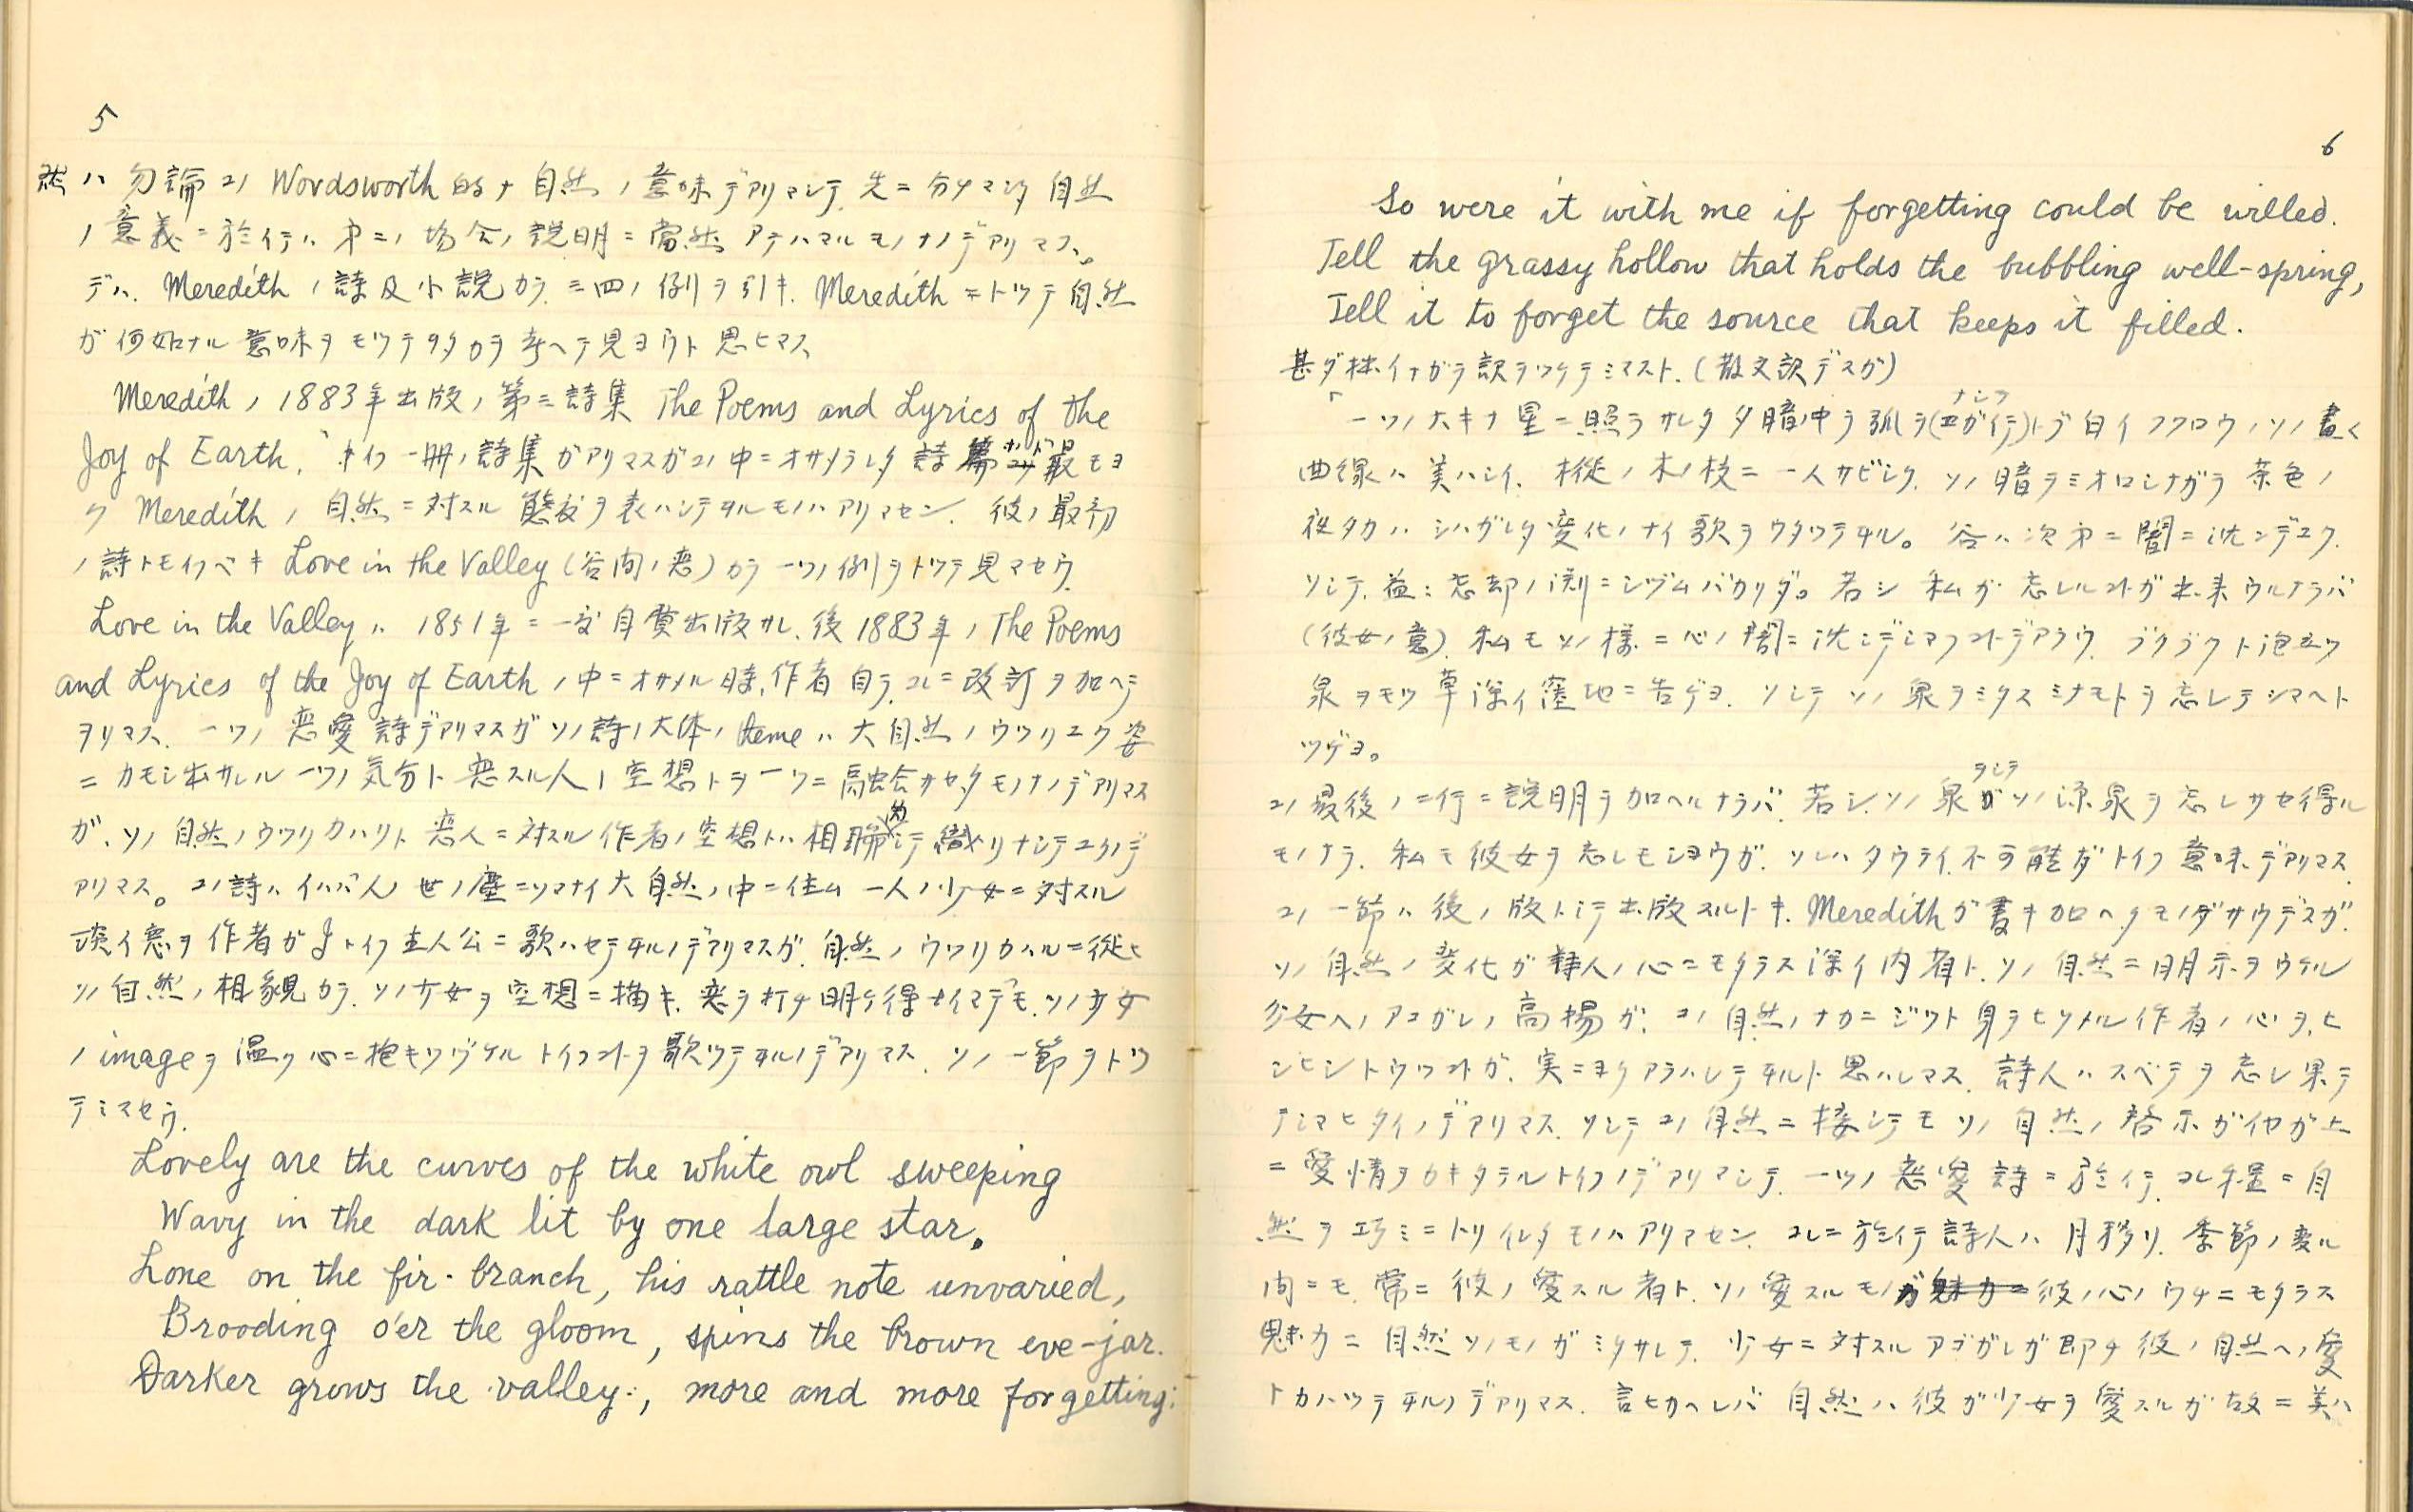 5
然ハ勿論コノ Wordsworth 的ナ自然ノ意味デアリマシテ、先ニ分チマシタ自然
ノ意義ニ於イテハ第二ノ場合ノ説明ニ当然アテハマルモノナノデアリマス。
デハ、Meredith ノ詩及小説カラ三四ノ例ヲ引キ、Meredith ニトツテ自然
ガ何如ナル意味ヲモツテヰタカヲ考ヘテ見ヨウト思ヒマス、
Meredith ノ 1883年出版ノ第三詩集 The Poems and Lyrics of the
Joy of Earth. トイフ一冊ノ詩集ガアリマスガコノ中ニオサメラレタ詩篇ホド最モヨ
ク Meredith ノ自然ニ対スル態度ヲ表ハシテヰルモノハアリマセン. 彼ノ最初
ノ詩トモイフベキ Love in the Valley (谷間ノ恋) カラ一ツノ例ヲトツテ見マセウ.
Love in the Valley ハ 1851年ニ一度自費出版サレ、後1883年ノ The Poems
and Lyrics of the Joy of Earth ノ中ニオサメル時、作者自ラコレニ改訂ヲ加ヘテ
ヲリマス. 一ツノ恋愛詩デアリマスガソノ詩ノ大体ノ theme ハ大自然ノウツリユク姿
ニカモシ出サレル一ツノ気分ト恋スル人ノ空想トヲ一ツニ融合サセタモノナノデアリマス
ガ、ソノ自然ノウツリカハリト恋人ニ対スル作者ノ空想トハ相聯シテ織リナシテユクノデ
アリマス。コノ詩ハイハバ人ノ世ノ塵ニソマナイ大自然ノ中ニ住ム一人ノ少女ニ対スル
淡イ恋ヲ作者ガ I トイフ主人公ニ歌ハセテヰルノデアリマスガ、自然ノウツリカハルニ従ヒ
ソノ自然ノ相貌カラ、ソノ少女ヲ空想ニ描キ、恋ヲ打チ明ケ得ナイマデモ、ソノ少女
ノ image ヲ温ク心ニ抱キツヅケルトイフコトヲ歌ツテヰルノデアリマス. ソノ一節ヲトツ
テミマセウ.
Lovely are the curves of the white owl sweeping
Wavy in the dark lit by one large star.
Lone on the fir-branch, his rattle note unvaried,
Brooding o'er the gloom, spins the brown eve-jar.
Darker grows the valley:, more and more forgetting:
6
So were it with me if forgetting could be willed.
Tell the grassy hollow that holds the bubbling well-spring,
Tell it to forget the source that keeps it filled.
甚ダ拙イナガラ訳ヲツケテミマスト. (散文訳デスガ)
「一ツノ大キナ星ニ照ラサレタ夕暗ノ中ヲ弧ヲトブ白イフクロウノソノ畫ク
曲線ハ美ハシイ、樅ノ木ノ枝ニ一人サビシク、ソノ暗ヲミオロシナガラ茶色ノ
夜タカハシハガレタ変化ノナイ歌ヲウタツテヰル。谷ハ次第ニ闇ニ沈ンデユク.
ソシテ、益々忘却ノ淵ニシヅムバカリダ。若シ私ガ忘レルコトガ出来ウルナラバ
(彼女ノ意)、私モソノ様ニ心ノ闇ニ沈ンデシマフコトデアラウ. ブクブクト泡立ツ
泉ヲモツ草深イ窪地ニ告ゲヨ. ソシテソノ泉ヲミタスミナモトヲ忘レテシマヘト
ツゲヨ。
コノ最後ノ二行ニ説明ヲ加ヘルナラバ、若シ、ソノ泉ヲシテソノ源泉ヲ忘レサセ得ル
モノナラ、私モ彼女ヲ忘レモシヨウガ、ソレハタウテイ不可能ダトイフ意味デアリマス.
コノ一節ハ後ノ版トシテ出版スルトキ、Meredith ガ書キ加ヘタモノダサウデスガ、
ソノ自然ノ変化ガ詩人ノ心ニモタラス深イ内省ト、ソノ自然ニ明示ヲウケル
少女ヘノアコガレノ高揚ガ、コノ自然ノナカニジツト身ヲヒソメル作者ノ心ヲ、ヒ
シヒシトウツコトガ、実ニヨクアラハレテヰルト思ハレマス. 詩人ハスベテヲ忘レ果テ
テシマヒタイノデアリマス. ソシテコノ自然ニ接シテモソノ自然ノ啓示ガ弥ガ上
ニ愛情ヲカキタテルトイフノデアリマシテ、一ツノ恋愛詩ニ於イテ、コレ程ニ自
然ヲ巧ミニトリイレタモノハアリマセン. コレニ於イテ詩人ハ月移リ、季節ノ変ル
間ニモ、常ニ彼ノ愛スル者ト、ソノ愛スルモノガ彼ノ心ノウチニモタラス
魅力ニ自然ソノモノガミタサレテ、少女ニ対スルアコガレガ即チ彼ノ自然ヘノ愛
トカハツテヰルノデアリマス. 言ヒカヘレバ自然ハ彼ガ少女ヲ愛スルガ故ニ美ハ